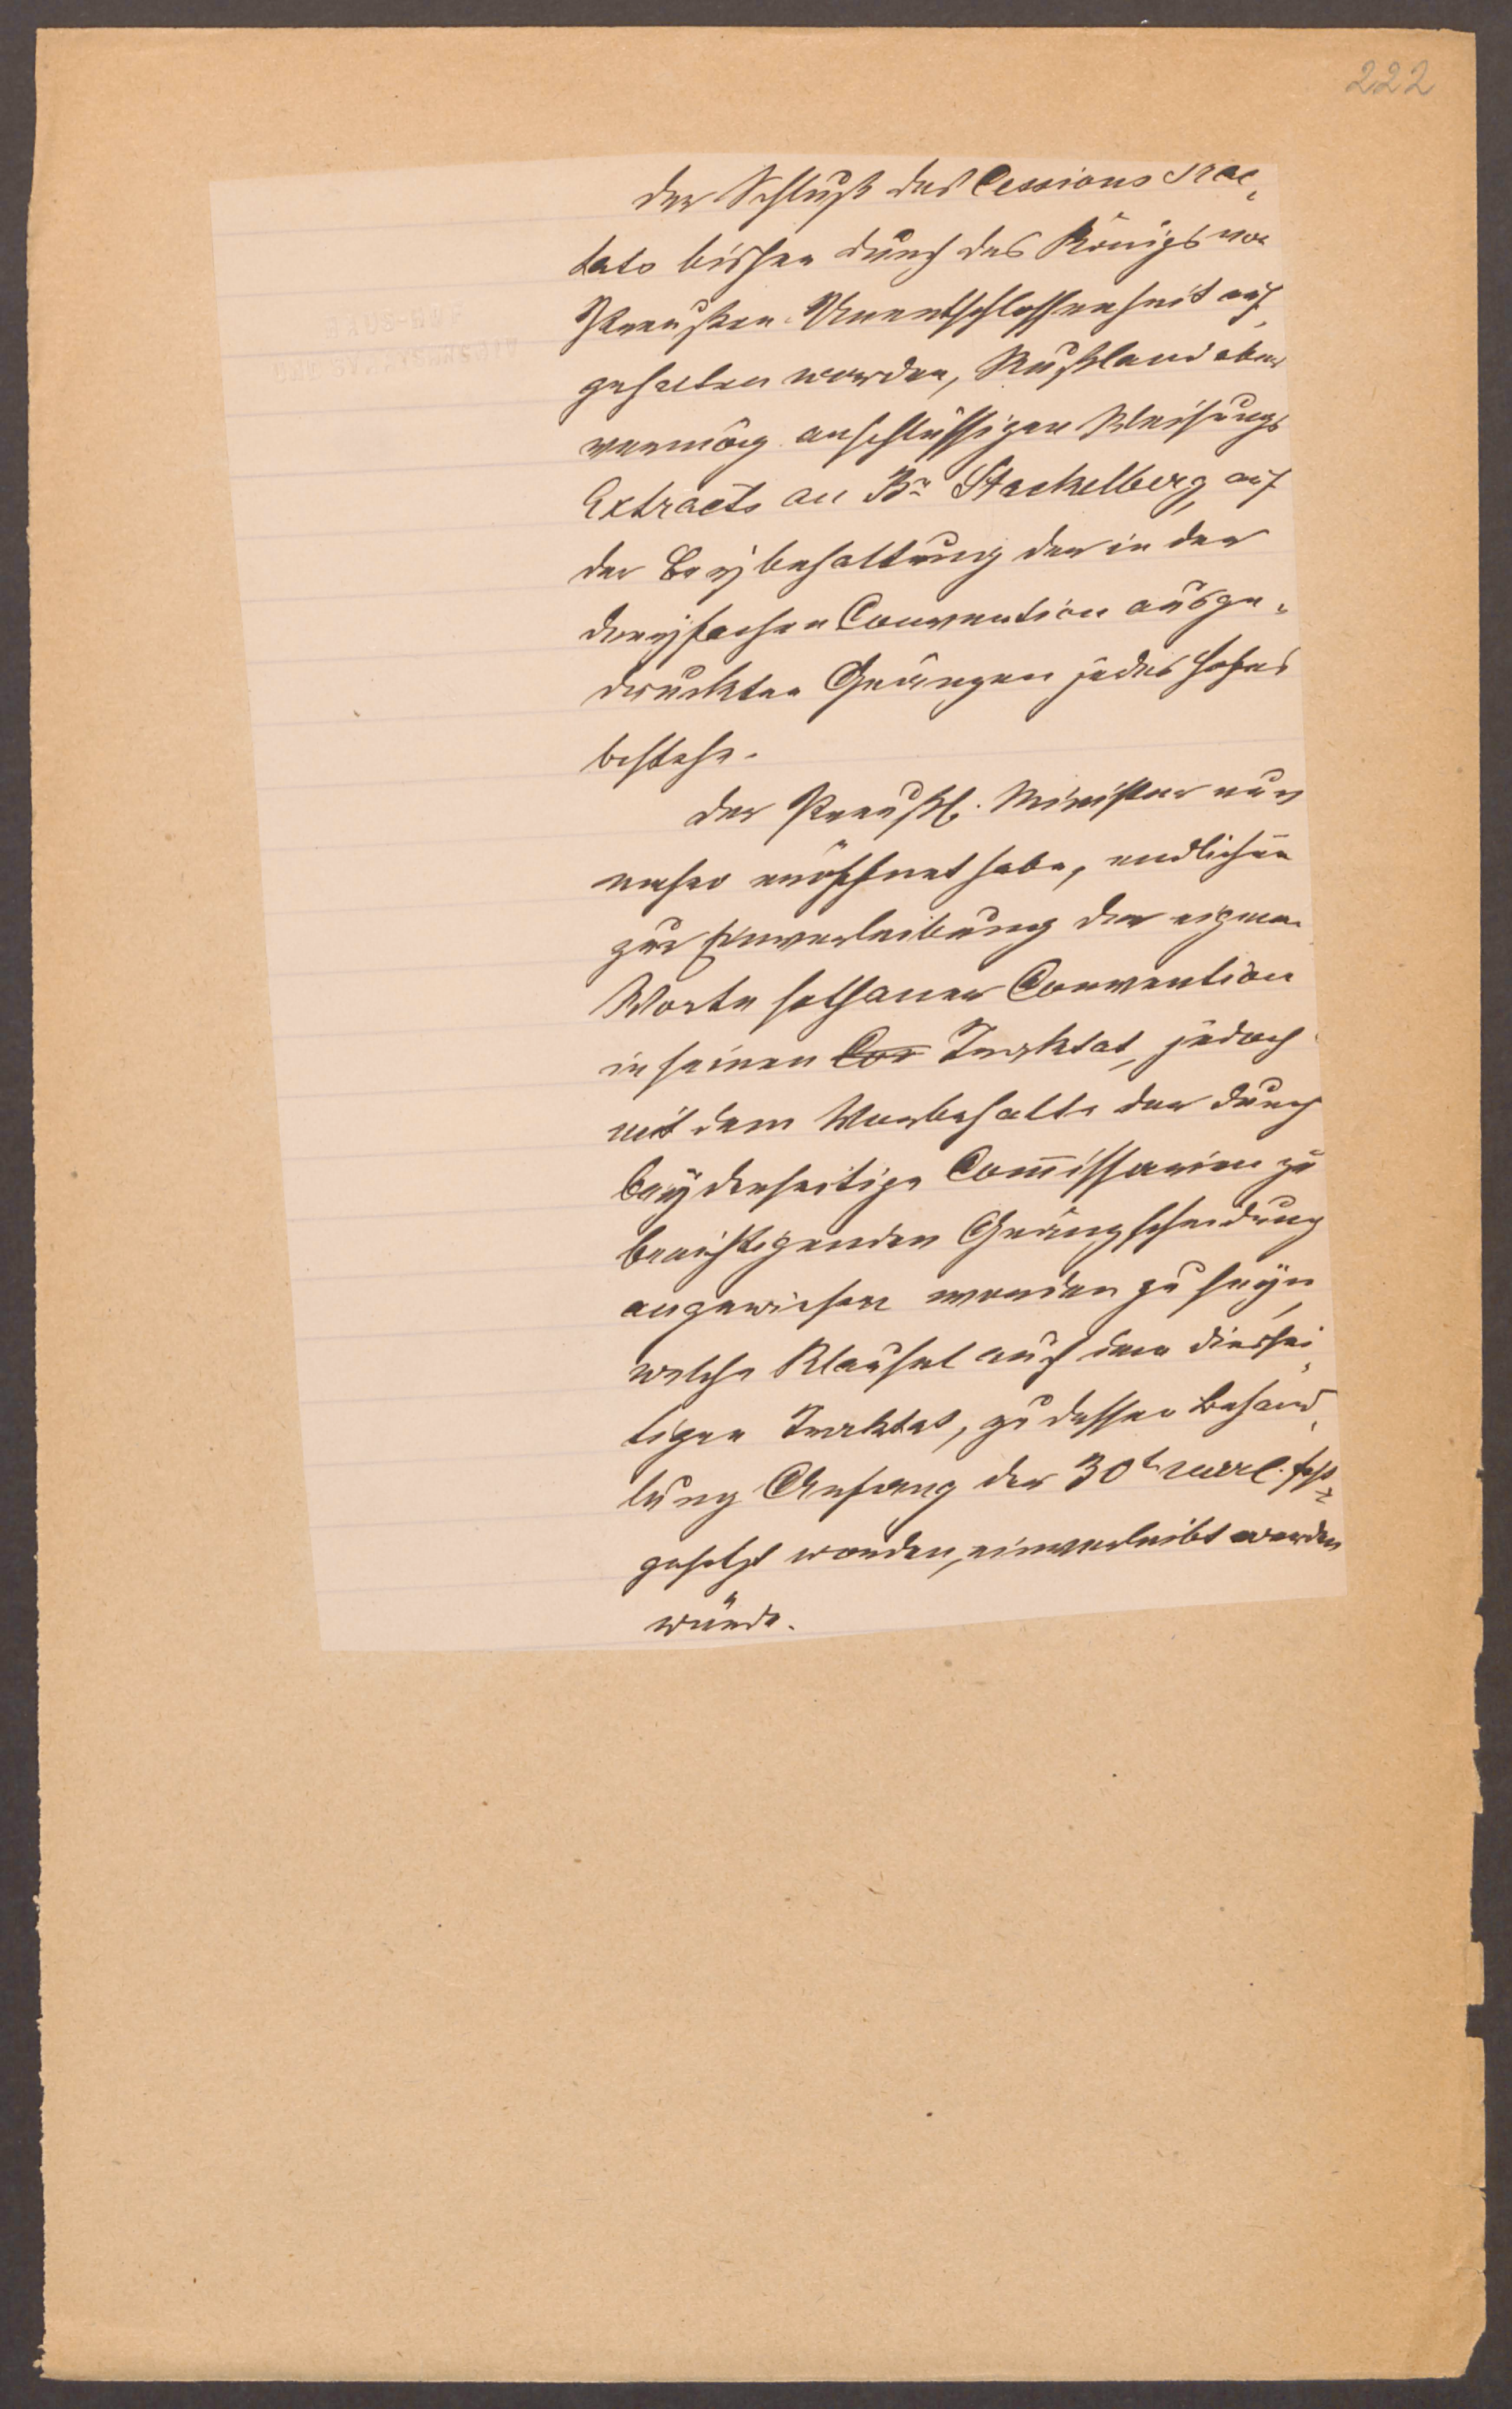 222
der Schluß des Cessions Trac„
tats bisher durch des Königs von
Preußen Unentschlossenheit auf„
gehalten worden, Rußland aber
vermög anschlüssigen Weisungs
Extracts an Bn Stackelberg, auf
der Beybehaltung der in der
dreyfachen Convention ausge„
druckten Gränzen jedes Hofes
bestehe.
der Preußl. Minister nun
mehro eröffnet habe, endlichen
zur Einverleibung der eigenen
Worte sothaner Convention
in seinen Cor Traktat, jedoch
mit dem Vorbehalte der durch
beyderseitige Commissarien zu
berichtigenden Gränzscheidung
angewiesen worden zu seyn,
welche Klausel auch dem diessei„
tigen Traktat, zu dessen Behand„
lung Anfang der 30t fest„
gesetzt worden, einverleibt werden
würde.